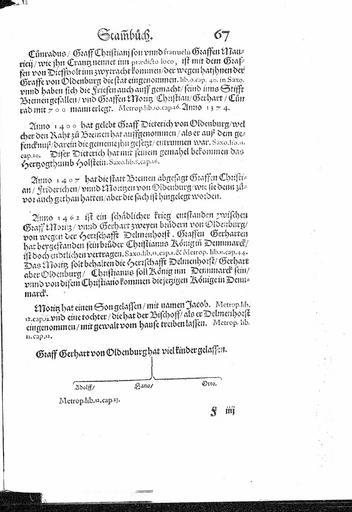 Stambůch. 67
Cůnradus / Graff Christianj son vnnd fratruelis Graffen Mau-
ricij / wie jhn Crantz nennet inn prædicto loco, ist mit dem Graf-
fen von Dieffholt inn zwytracht kommen / der wegen hat jhnen der
Graffe von Oldenburg die stat eingenommen. lib.9.cap.40. in Saxo.
vnnd haben sich die Friesen auch auff gemacht / seind inns Stifft
Bremen gefallen / vnd Graffen Moritz / Christian / Gerhart / Cůn
rad mit 700 mann erlegt. Metrop. lib.10.cap.16. Anno 1374.
Anno 1400 hat gelebt Graff Dieterich von Oldenburg / wel
cher den Raht zů Bremen hat auffgenommen / als er auß dem ge-
fencknuß / darein die gemein jhn gesetzt / entrunnen war. Saxo.lib.11.
cap.10. Diser Dieterich hat mit seinem gemahel bekommen das
Hertzogthumb Holstein. Saxo.lib.8.cap.26.
Anno 1407 hat die stat Bremen abgesagt Graffen Christi-
an / Friderichen / vnnd Moritzen von Oldenburg / wie sie denn zů-
vor auch gethan hatten / aber die sach ist hingelegt worden.
Anno 1462 ist ein schådlicher krieg entstanden zwischen
Graff Moritz / vnnd Gerhart zweyen brůdern von Oldenburg /
von wegen der Herrschafft Delmenhorst. Graffen Gerharten
hat beygestanden sein brůder Christianus König in Dennmarck /
ist doch endtlichen vertragen. Saxo.lib.12.cap.1. & Metrop. lib.11.cap.44.
Das Moritz solt behalten die Herrschafft Delmenhorst / Gerhart
aber Oldenburg / Christianus soll König inn Dennmarck sein /
vnnd von disem Christiano kommen die jetzigen Könige in Denn-
marck.
Moritz hat einen Son gelassen / mit namen Jacob. Metrop. lib.
12.cap.9. vnd eine tochter / die hat der Bischoff / als er Delmenhorst
eingenommen / mit gewalt vom hause treiben lassen. Metrop. lib.
12.cap.12.
Graff Gerhart von Oldenburg hat viel kinder gelassen.
Adolff / Hans / Otto.
Metrop.lib.12.cap.13.
F iiij